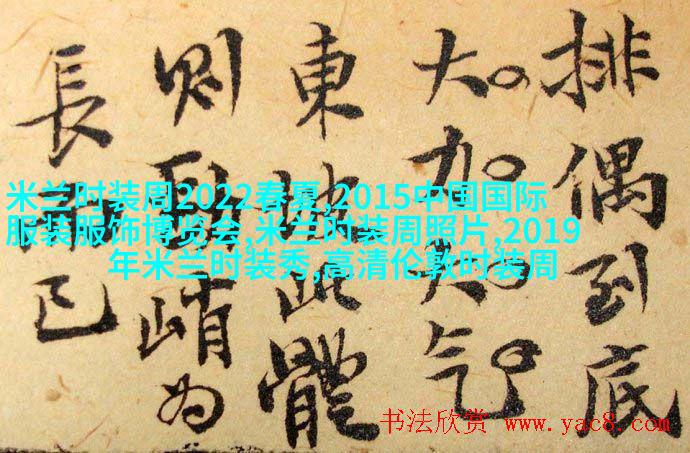 排偶到底
大气
東坡此體
則峭为
長已
米兰时装周2022春夏,2015中国国际
服装服饰博览会,米兰时装周照片,2019
年米兰时装秀,高清伦敦时装周
书法欣赏 www.yac8.com